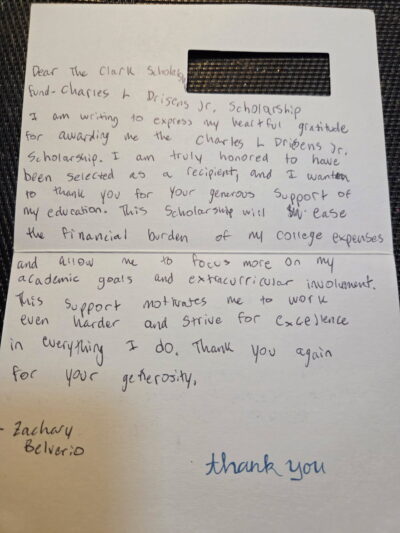 Dear The Clark Scholarship
Fund - Charles L Driscns Jr. Scholarship
I am writing to express my heartful gratitude
for awarding me the Charles L Dribens Jr.
Scholarship. I am truly honored to have
been selected as a recipient, and I wanten
to thank you for your generous support of
my education. This Scholarship will ease
the financial burden of my college expenses
and allow me to focus more on my
academic goals and extracurricular involvement.
This support motivates me to work
even harder and strive for excellence
in everything I do. Thank you again
for your generosity.
- Zachary
Belverio
thank you